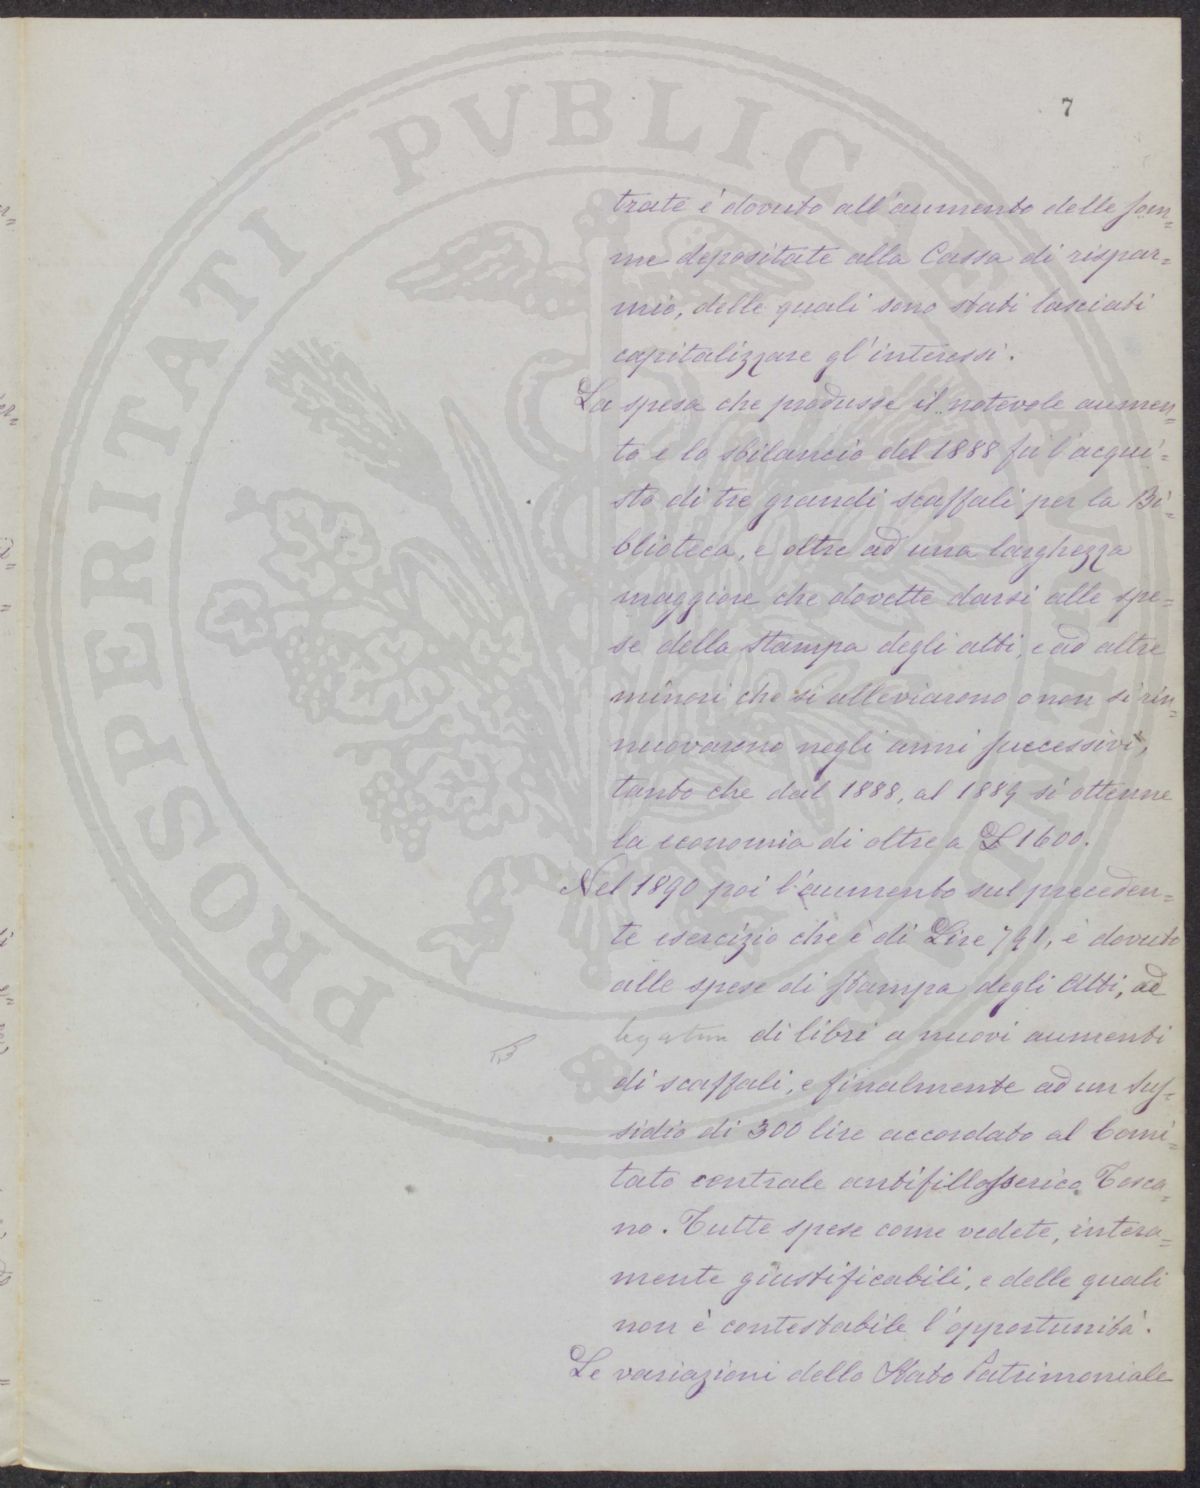 7
trate è dovuto all'aumento delle som=
me depositate alla Cassa di rispar=
mio, delle quali sono stati lasciati
capitalizzare gl'interessi.
La spesa che produsse il notevole aumen=
to e lo sbilancio del 1888 fu l'acqui=
sto di tre grandi scaffali per la Bi=
blioteca, e oltre ad una larghezza
maggiore che dovette darsi alle spe=
se della stampa degli atti, e ad altre
minori che si alleviarono o non si rin=
nuovarono negli anni successivi,
tanto che dal 1888, al 1889 si ottenne
la economia di oltre a £ 1600.
Nel 1890 poi l'aumento sul preceden=
te esercizio che è di Lire 791, è dovuto
alle spese di stampa degli Atti, ad
legatura di libri a nuovi aumenti
di scaffali, e finalmente ad un sus=
sidio di 300 lire accordato al Comi=
tato centrale antifillosserico Tosca=
no. Tutte spese come vedete, intera=
mente giustificabili, e delle quali
non è contestabile l'opportunità.
Le variazioni dello Stato Patrimoniale
PROSPERITATI PVBLICAE